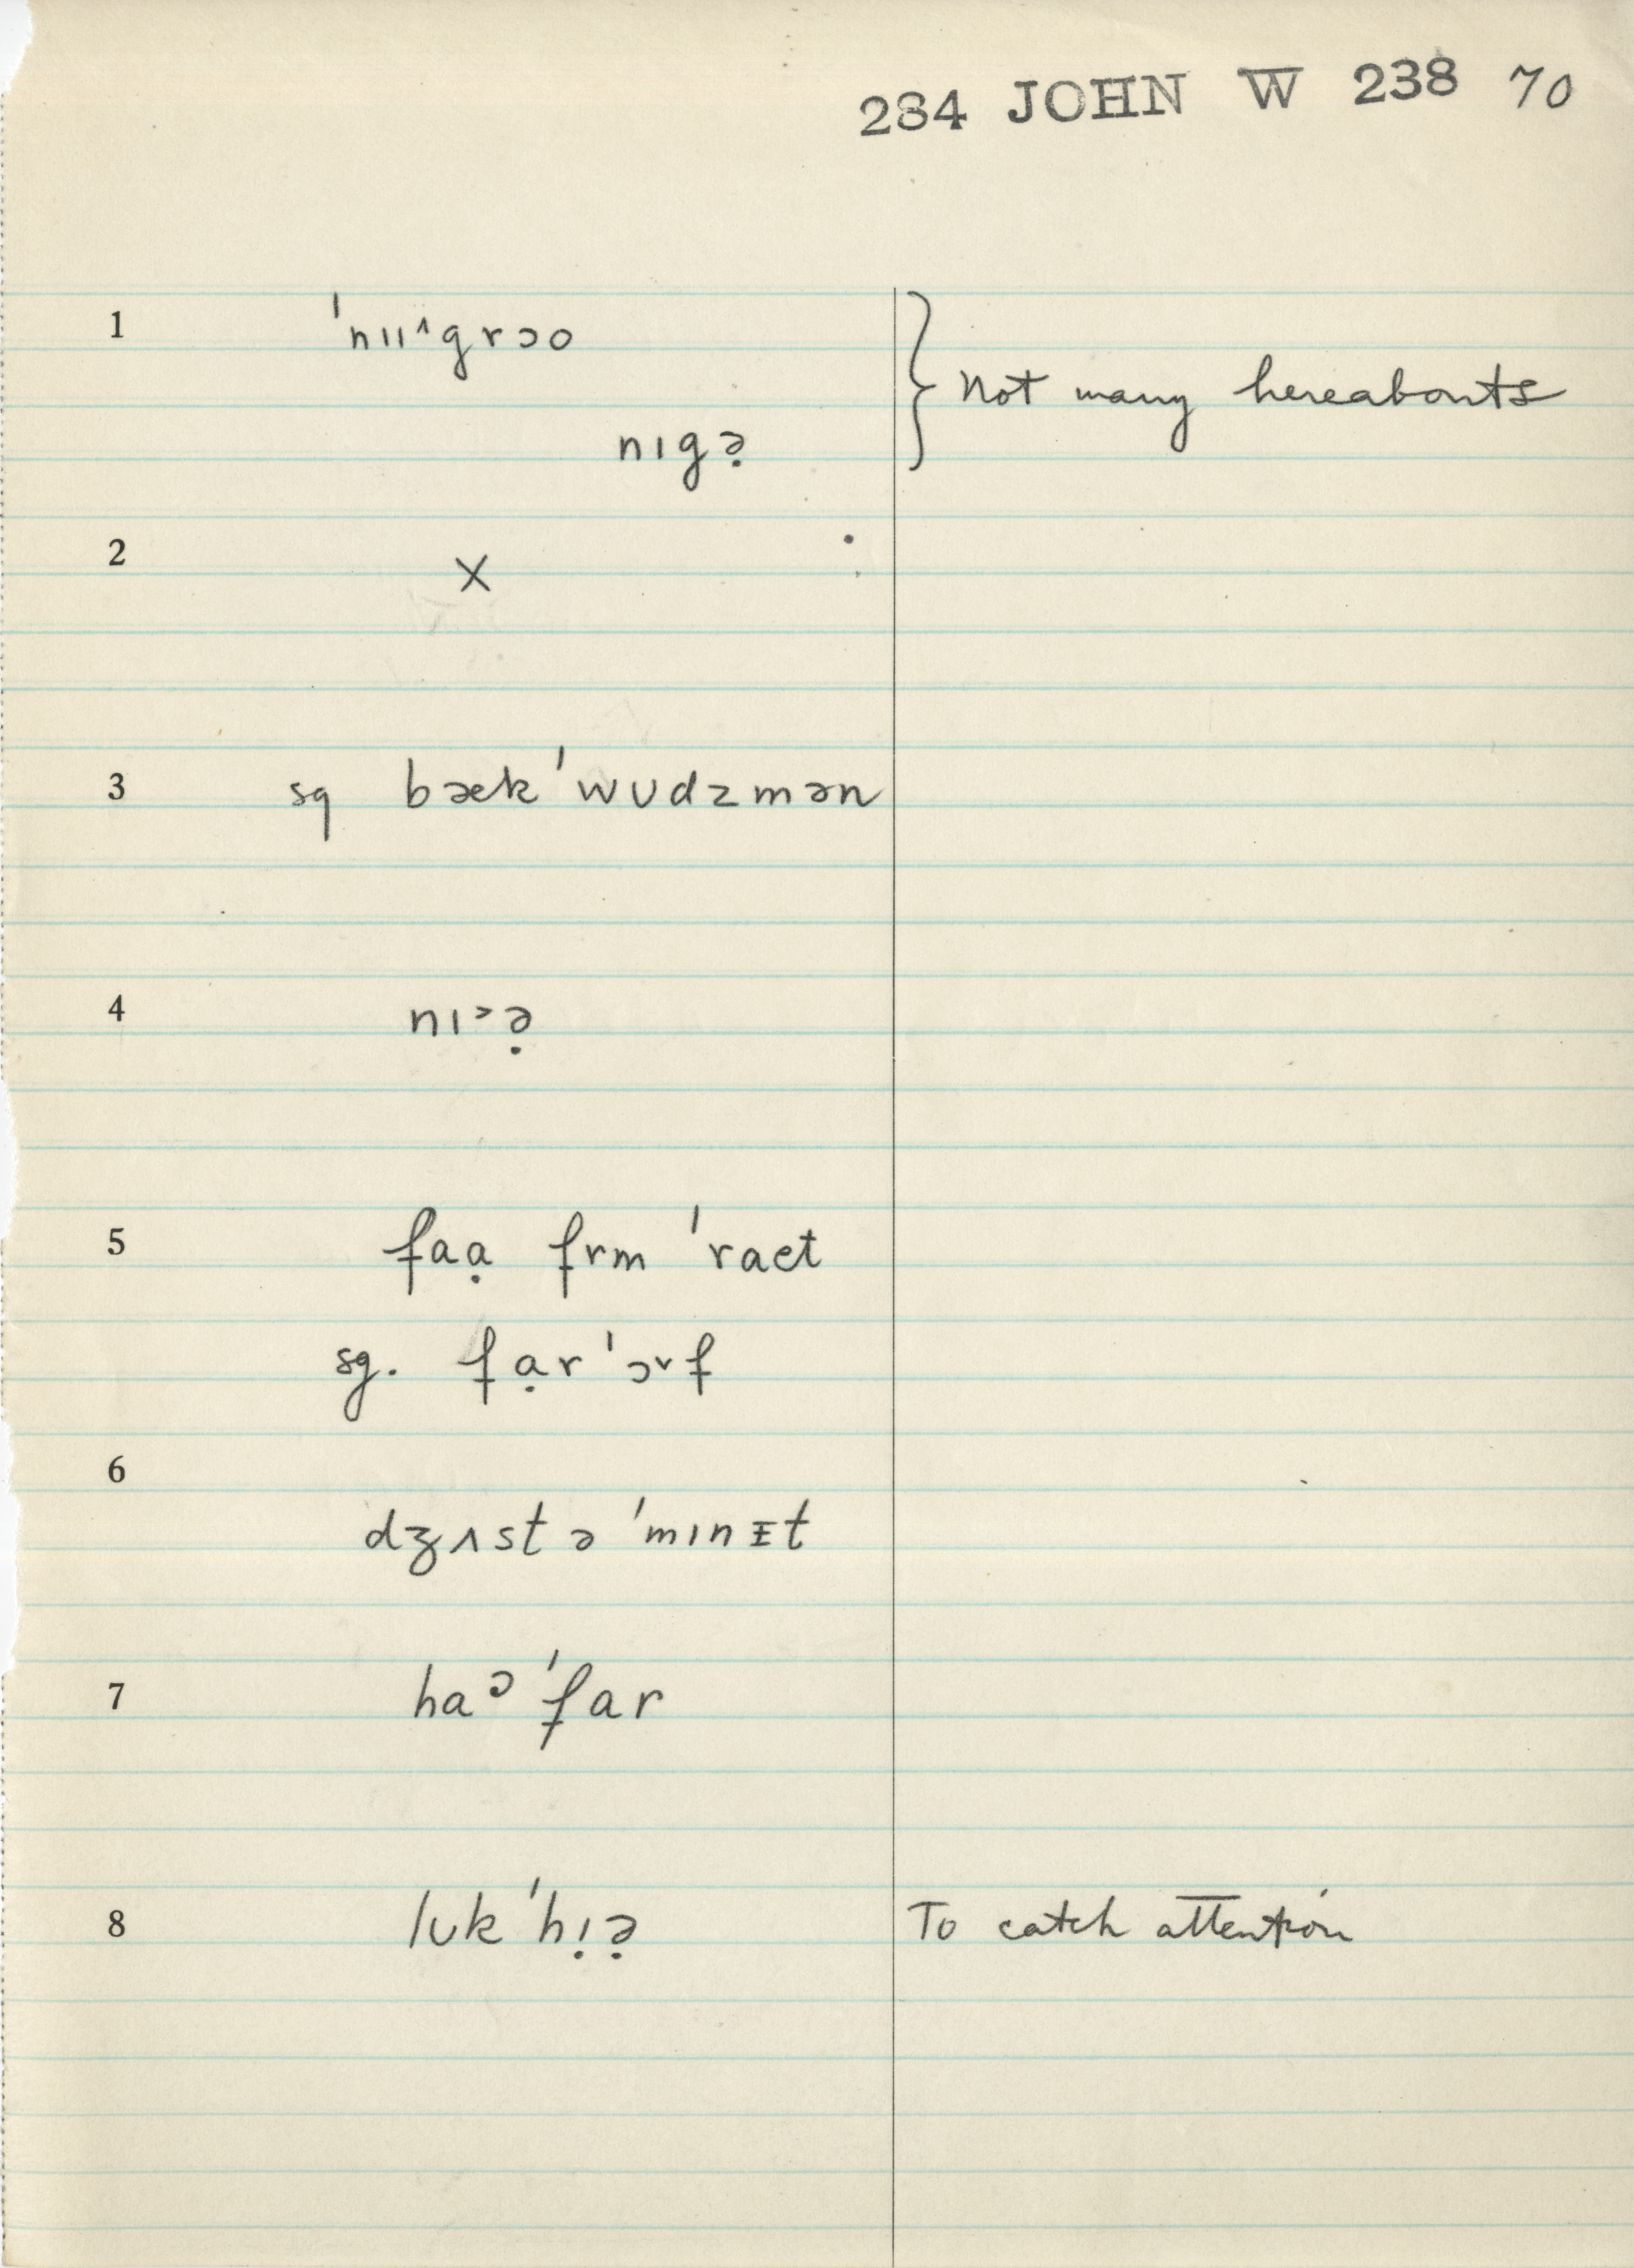 284 JOHN W 238 70
1 ˈnɪɪ^grɔo } Not many hereabouts
nɪgə̣
2 X
3 sg bæk ˈwʊdzmən
4 nɪ˃ə̣
5 faạ frm ˈraet
sg. fạr ˈɔ˅f
6
dʒʌst ə ˈmɪnᵻt
7 haᵓ ˈfar
8 lʊk ˈhɪ̣ə̣ To catch attention